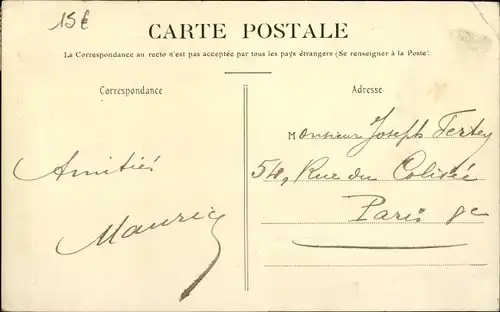 15€
CARTE POSTALE
La Correspondance au recto n'est pas acceptée par tous les pays étrangers (Se renseigner à la Poste).
Correspondance
Adresse
Monsieur Joseph
54, Rue du Colisée
Paris 8e
Amitiés
Maurice